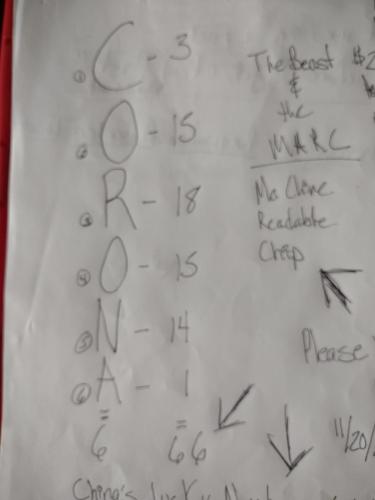 ① C - 3
② O - 15
③ R - 18
④ O - 15
⑤ N - 14
⑥ A - 1
= =
6 66
The Beast $2
&
the
MARC
Ma Chine
Readable
Chip
Please
11/20/
China's